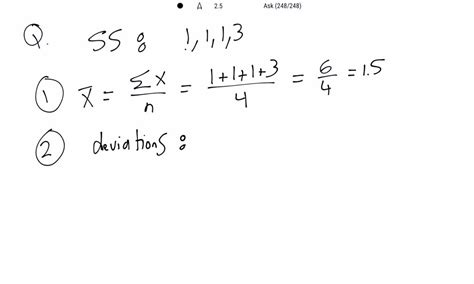 2.5 Ask (248/248)
Q. SS: 1,1,1,3
① x̄ = Σx/n = 1+1+1+3/4 = 6/4 = 1.5
② deviations: